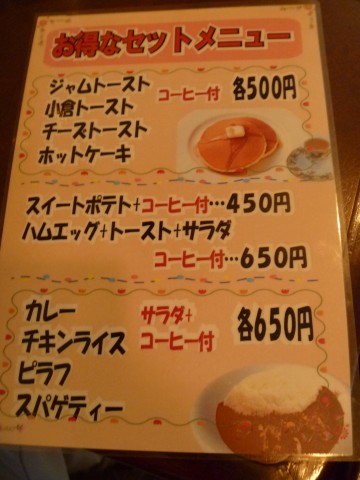 お得なセットメニュー
ジャムトースト
小倉トースト
チーズトースト
ホットケーキ
コーヒー付 各500円
スイートポテト+コーヒー付…450円
ハムエッグ+トースト+サラダ
コーヒー付…650円
カレー
チキンライス
ピラフ
スパゲティー
サラダ+
コーヒー付
各650円